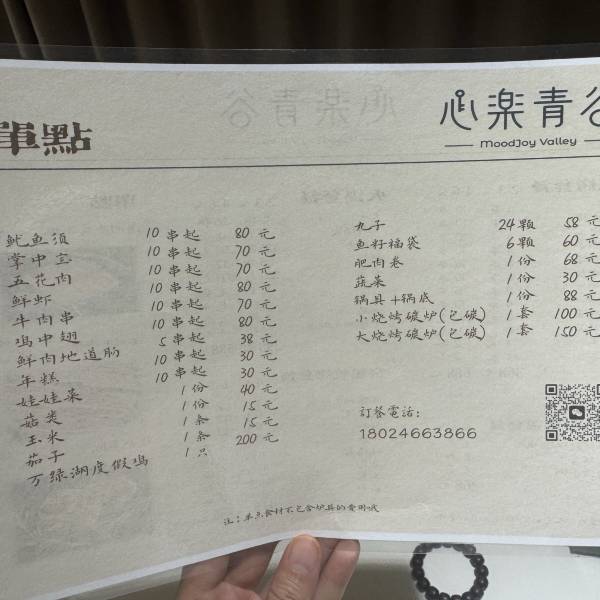 單點
心楽青谷
MoodJoy Valley
鱿鱼须 10 串起 80 元
掌中宝 10 串起 70 元
五花肉 10 串起 70 元
鲜虾 10 串起 80 元
牛肉串 10 串起 70 元
鸡中翅 10 串起 80 元
鲜肉地道肠 5 串起 38 元
年糕 10 串起 30 元
娃娃菜 1 份 30 元
菇类 1 份 40 元
玉米 1 条 15 元
茄子 1 条 15 元
万绿湖度假鸡 1 只 200 元
丸子 24 颗 58 元
鱼籽福袋 6 颗 60 元
肥肉卷 1 份 68 元
蔬菜 1 份 30 元
锅具+锅底 1 份 88 元
小烧烤碳炉(包碳) 1 套 100 元
大烧烤碳炉(包碳) 1 套 150 元
訂餐電話:
18024663866
注:单点食材不包含炉具的费用哦